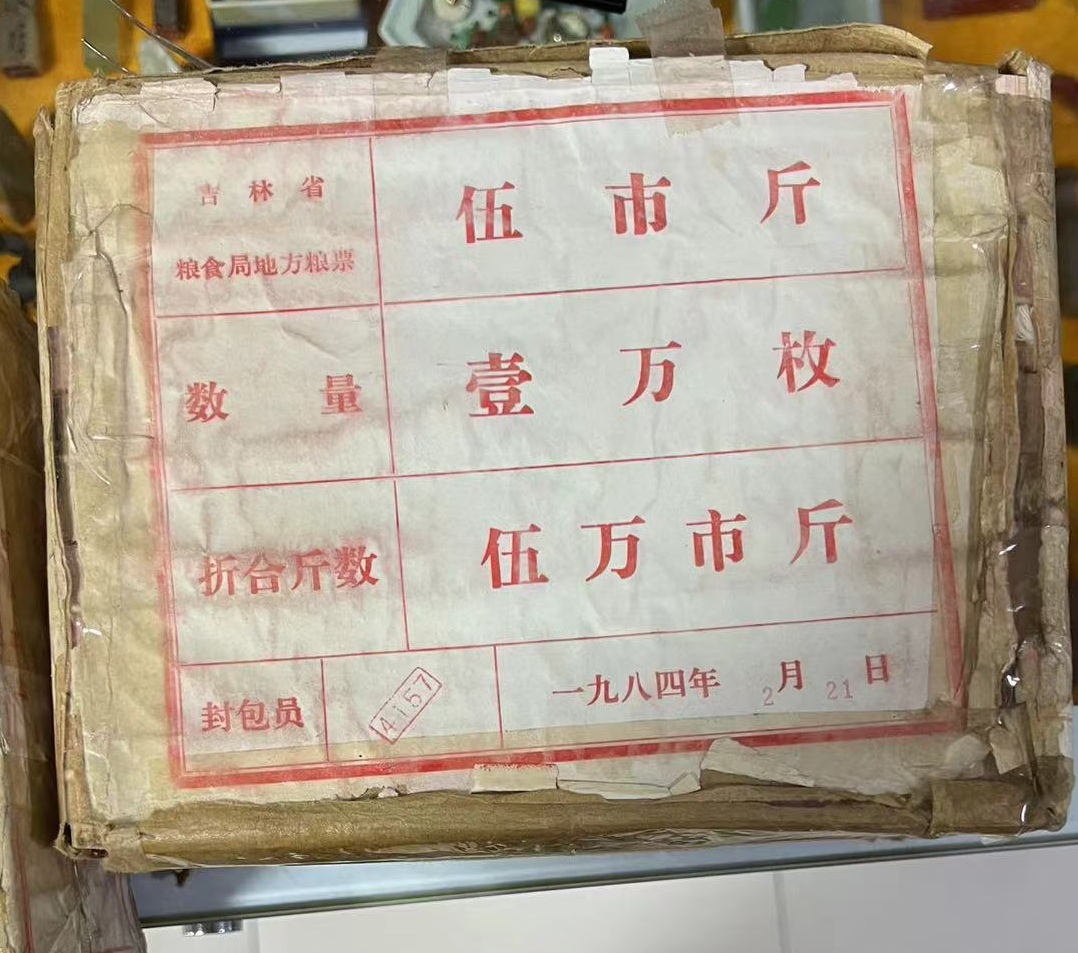 吉林省
粮食局地方粮票
伍市斤
数量
壹万枚
折合斤数
伍万市斤
封包员
4157
一九八四年2月21日